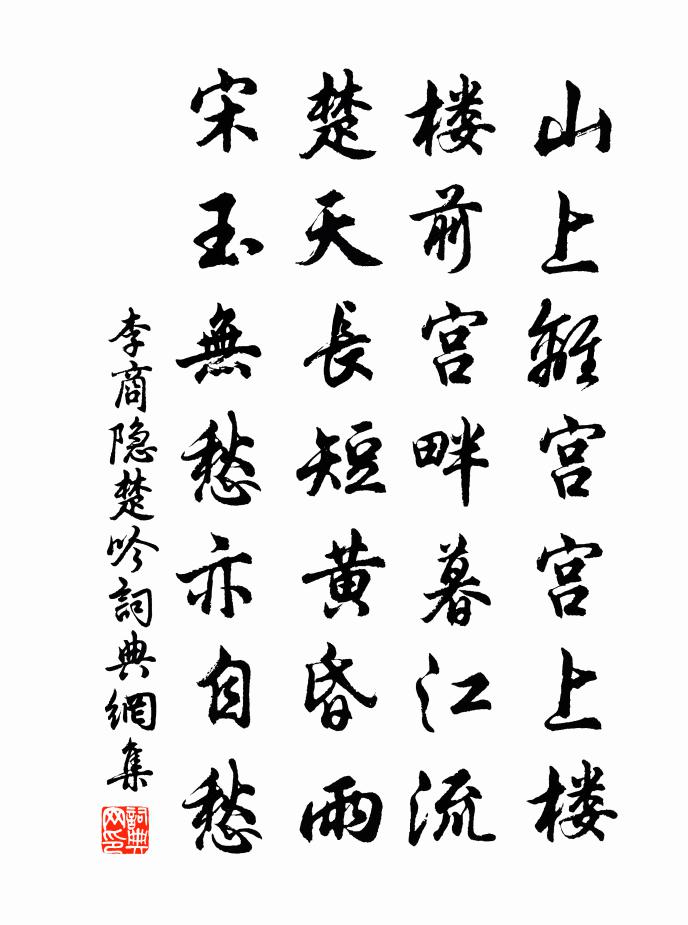 山上離宫宫上楼
楼前宫畔暮江流
楚天長短黄昏雨
宋玉無愁亦自愁
李商隐楚吟詞典網集
詞典网印